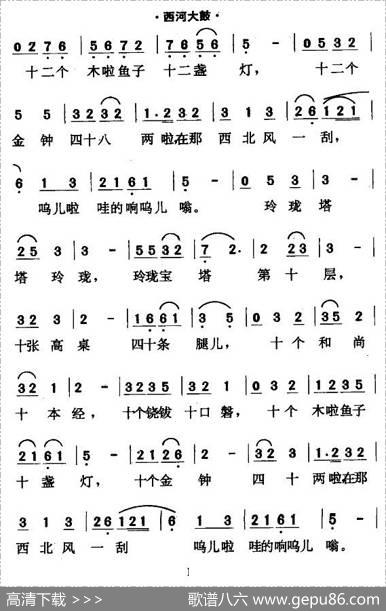 ·西河大鼓·
0 2 7 6 | 5 6 7 2 | 7 6 5 6 | 5 - | 0 5 3 2 |
十二个 木啦鱼子 十二盏 灯， 十二个
5 5 | 3 2 3 2 | 1·2 3 2 | 3 1 3 | 2 6 1 2 1 |
金钟 四十八 两啦在那 西北风 一刮，
6 1 3 | 2 1 6 1 | 5 - | 0 5 3 | 3 - |
呜儿啦 哇的响呜儿 嗡。 玲珑 塔
2 5 3 | 3 - | 5 5 3 2 | 7 2· | 2 2 3 | 3 - |
塔玲 珑， 玲珑宝 塔 第十 层，
3 2 3 | 2 - | 1 6 6 1 | 3 5 | 0 3 2 | 3 5 |
十张高 桌 四十条 腿儿， 十个 和尚
3 2 1 | 2 - | 3 2 3 5 | 3 2 1 | 0 3 2 | 1 2 3 5 |
十本 经， 十个铙钹 十口磬， 十个 木啦鱼子
2 1 6 1 | 5 - | 2 1 2 6 | 2 - | 3 2 3 | 1·2 3 2 |
十盏 灯， 十个金 钟 四十 两啦在那
3 1 3 | 2 6 1 2 1 | 6 - | 0 1 3 | 2 1 6 1 | 5 - |
西北风 一刮 呜儿啦 哇的响呜儿 嗡。
1
高清下载 >>> 歌谱八六 www.gepu86.com